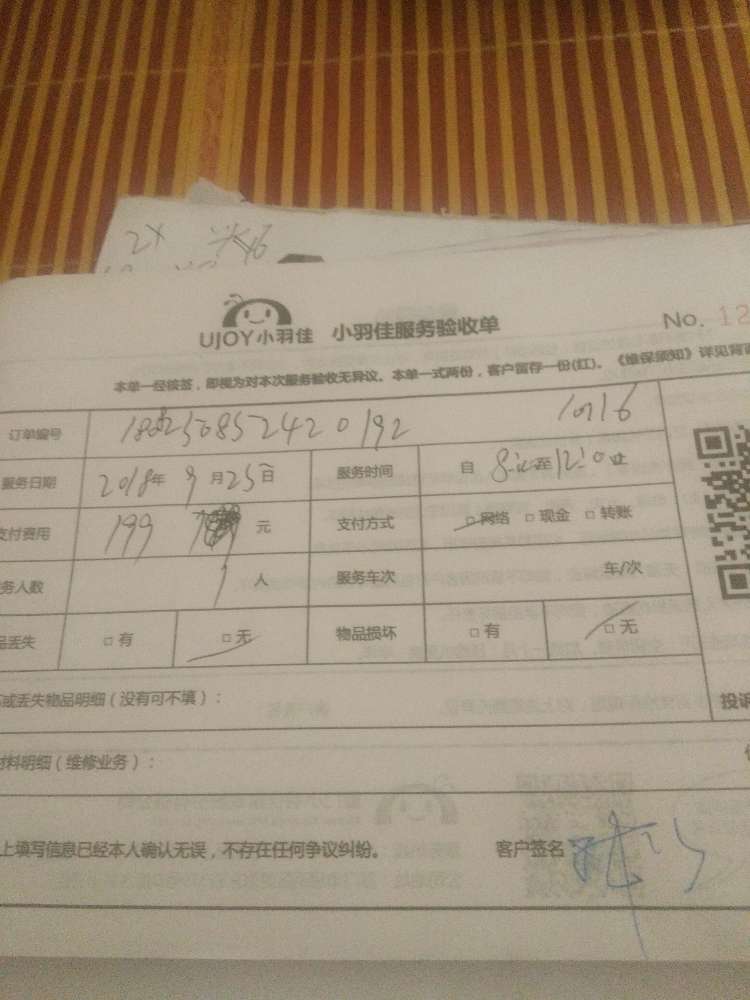 2X
UJOY小羽佳 小羽佳服务验收单 No. 12
本单一经核签，即视为对本次服务验收无异议。本单一式两份，客户留存一份(红)。《维保须知》详见背
订单编号
服务日期 2018年 9月25日 服务时间 自 至
支付费用 199 元 支付方式 □网络 □现金 □转账
务人数 1 人 服务车次 车/次
品丢失 □有 □无 物品损坏 □有 □无
或丢失物品明细（没有可不填）：
投诉
材料明细（维修业务）：
上填写信息已经本人确认无误，不存在任何争议纠纷。 客户签名